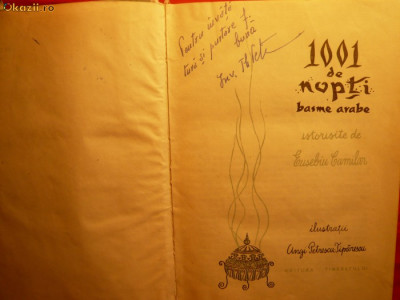 Okazii.ro
Pentru învăță
tură și purtare
bună
1001
de
nopți
basme arabe
istorisite de
Eusebiu Camilar
ilustrații
Angi Petrescu Tipărescu
EDITURA TINERETULUI